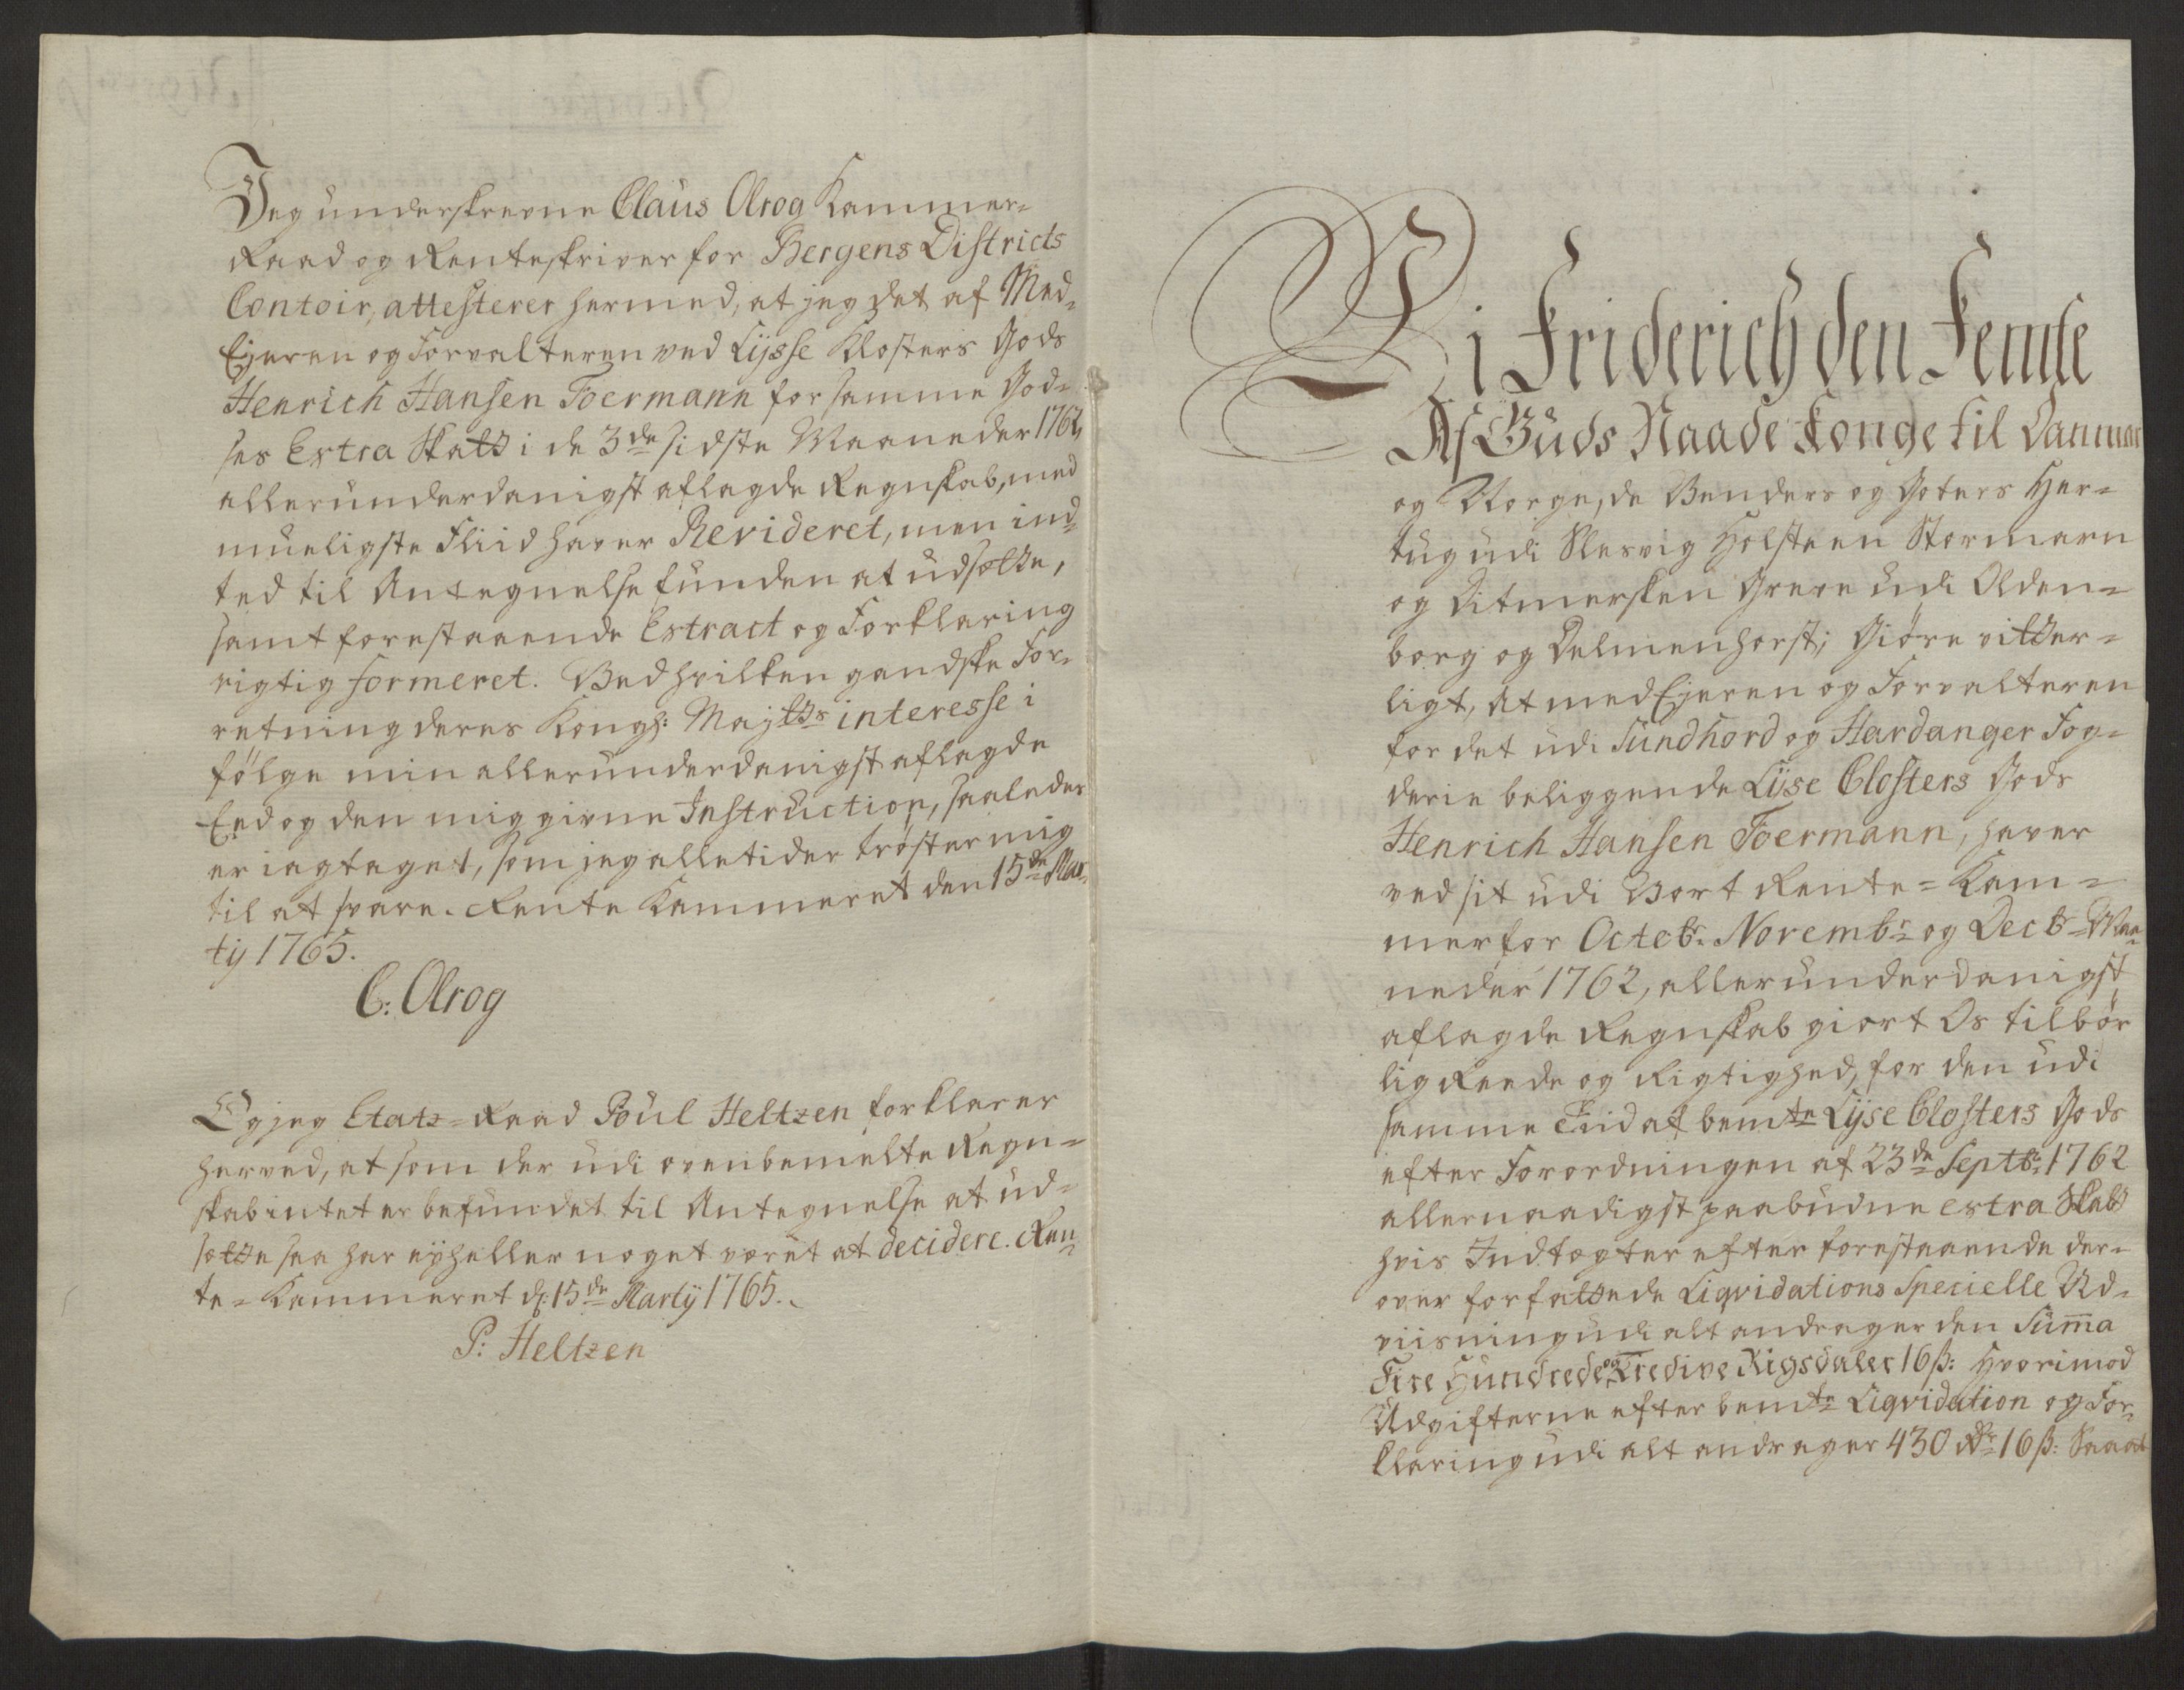 Jeg underskrevne Claus Olrog Kammer-
Raad og Renteskriver for Bergens Districts
Contoir, attesterer hermed, at jeg det af Med-
Ejeren og Forvalteren ved Lysse Klosters Gods
Henrich Hansen Foermann for samme God-
ses Extra Skatt i de 3de sidste Maaneder 1762,
allerunderdanigst aflagde Regnskab, med
mueligste Fliid haver Revideret, men ind-
ted til Antegnelse funden at udsætte,
samt forestaaende Extract og Forklaring
rigtig formeret. Ved hvilken gandske For-
retning deres Kongl: Maytts interesse i
følge min allerunderdanigst aflagde
Eed og den mig givne Instruction, saaledes
er iagtaget, som jeg alletider trøster mig
til at svare. Rente Kammeret den 15de Mar-
tij 1765.
C: Olrog
Og jeg Etatz-Raad Poul Heltzen forklarer
herved, at som der udi ovenbemelte Regn-
skab intet er befundet til Antegnelse at ud-
sætte saa har ey heller noget været at decidere. Ren-
te-Kammeret d: 15de Martij 1765.
P: Heltzen
Vi Friderich den Femte
Af Guds Naade Konge til Danmar
og Norge, de Venders og Goters Her-
tug udi Slesvig Holsteen Stormarn
og Ditmersken Greve udi Olden-
borg og Delmenhorst; Giøre vitter-
ligt, At medEjeren og Forvalteren
for det udi Sundhord og Hardanger Fog-
derie beliggende Lyse Closters Gods
Henrich Hansen Foermann, haver
ved sit udi Vort Rente-Kam-
mer for Octobr. Novembr. og Decbr. Maa-
neder 1762, allerunderdanigst
aflagde Regnskab giort Os tilbør
lig Reede og Rigtighed, for den udi
samme Tiid af bemte Lyse Closters Gods
efter Forordningen af 23de Septbr. 1762
allernaadigst paabudne extra Skatt
hvis Indtægter efter forestaaende der-
over forfattede Liqvidations Specielle Ud-
viisning udi alt andrager den Sum̅a
Fire Hundrede og Tredive Rigsdaler 16 ß: Hvorimod
Udgifterne efter bemte Liqvidation og For-
klaring udi alt andrager 430 Rdr 16 ß: Saa at